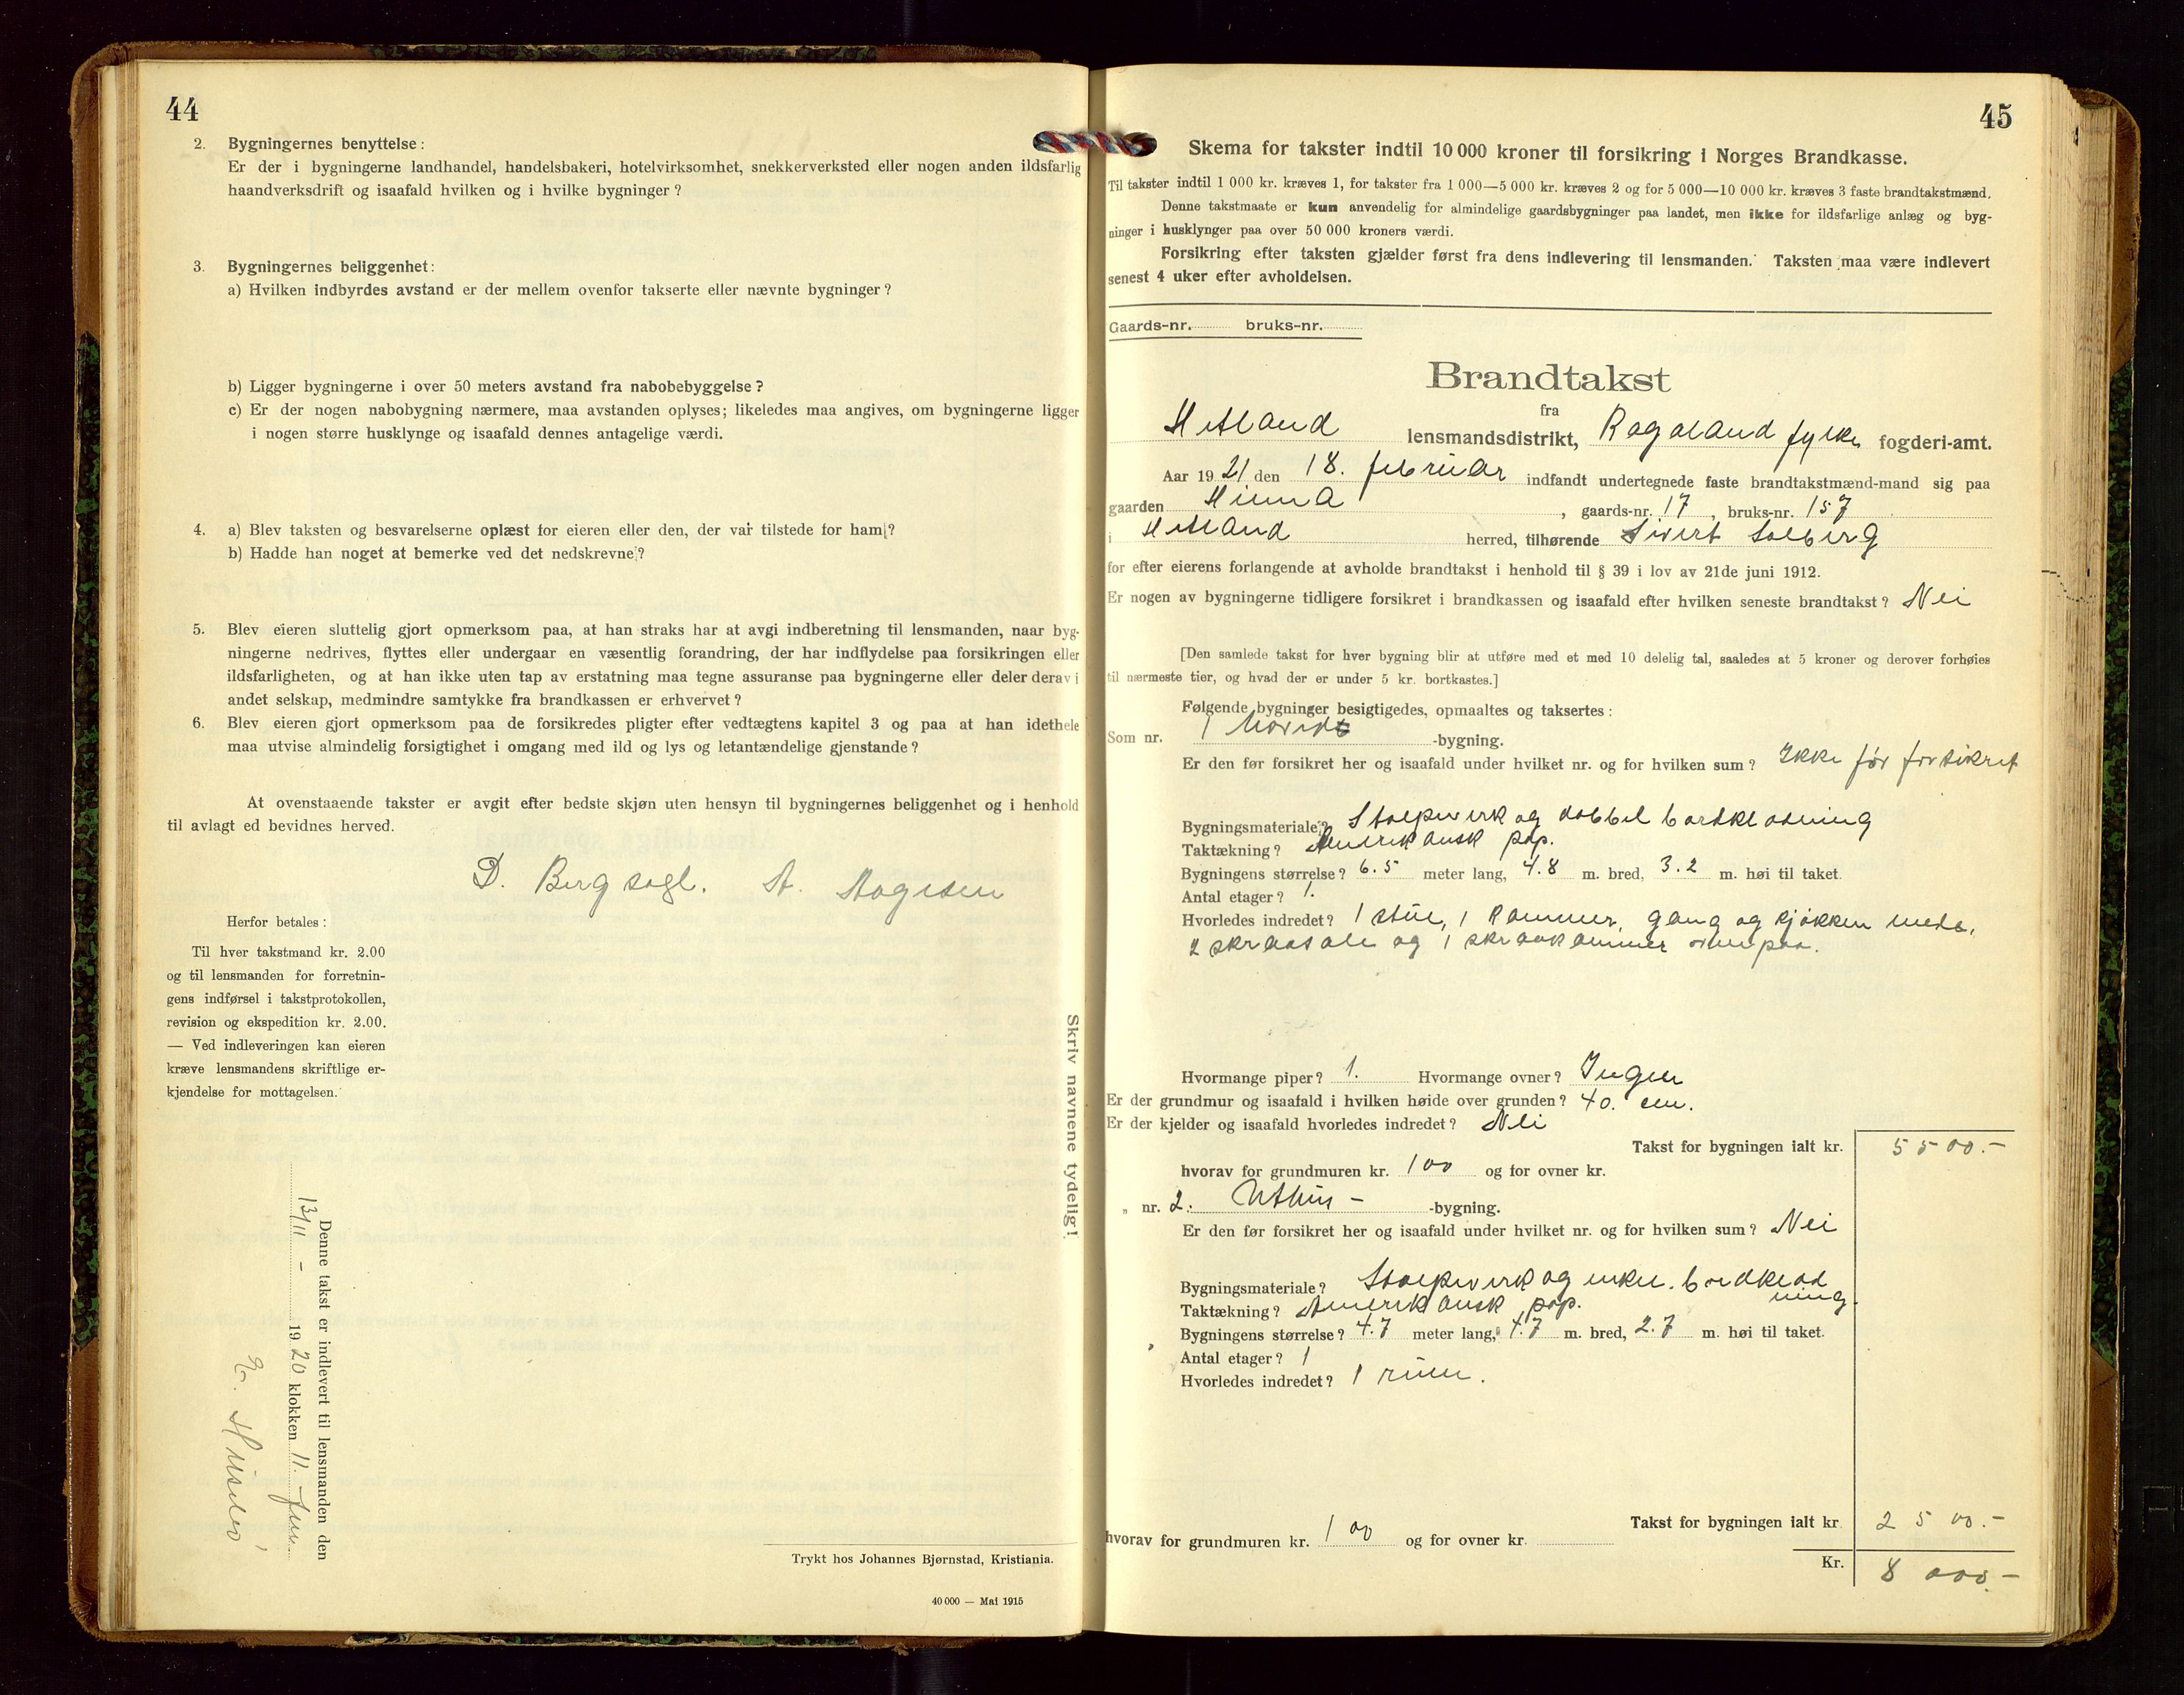 44
2. Bygningernes benyttelse:
Er der i bygningerne landhandel, handelsbakeri, hotelvirksomhet, snekkerverksted eller nogen anden ildsfarlig
haandverksdrift og isaafald hvilken og i hvilke bygninger?
3. Bygningernes beliggenhet:
a) Hvilken indbyrdes avstand er der mellem ovenfor takserte eller nævnte bygninger?
b) Ligger bygningerne i over 50 meters avstand fra nabobebyggelse?
c) Er der nogen nabobygning nærmere, maa avstanden oplyses; likeledes maa angives, om bygningerne ligger
i nogen større husklynge og isaafald dennes antagelige værdi.
4. a) Blev taksten og besvarelserne oplæst for eieren eller den, der var tilstede for ham?
b) Hadde han noget at bemerke ved det nedskrevne?
5. Blev eieren sluttelig gjort opmerksom paa, at han straks har at avgi indberetning til lensmanden, naar byg-
ningerne nedrives, flyttes eller undergaar en væsentlig forandring, der har indflydelse paa forsikringen eller
ildsfarligheten, og at han ikke uten tap av erstatning maa tegne assuranse paa bygningerne eller deler derav i
andet selskap, medmindre samtykke fra brandkassen er erhvervet?
6. Blev eieren gjort opmerksom paa de forsikredes pligter efter vedtægtens kapitel 3 og paa at han idethele
maa utvise almindelig forsigtighet i omgang med ild og lys og letantændelige gjenstande?
At ovenstaaende takster er avgit efter bedste skjøn uten hensyn til bygningernes beliggenhet og i henhold
til avlagt ed bevidnes herved.
D. Bergsagl. A. Aagesen
Herfor betales:
Til hver takstmand kr. 2.00
og til lensmanden for forretnin-
gens indførsel i takstprotokollen,
revision og ekspedition kr. 2.00.
— Ved indleveringen kan eieren
kræve lensmandens skriftlige er-
kjendelse for mottagelsen.
Skriv navnene tydelig!
Denne takst er indlevert til lensmanden den
13/11 - 1920 klokken 11. fm.
Trykt hos Johannes Bjørnstad, Kristiania.
40 000 — Mai 1915
45
Skema for takster indtil 10 000 kroner til forsikring i Norges Brandkasse.
Til takster indtil 1 000 kr. kræves 1, for takster fra 1 000—5 000 kr. kræves 2 og for 5 000—10 000 kr. kræves 3 faste brandtakstmænd.
Denne takstmaate er kun anvendelig for almindelige gaardsbygninger paa landet, men ikke for ildsfarlige anlæg og byg-
ninger i husklynger paa over 50 000 kroners værdi.
Forsikring efter taksten gjælder først fra dens indlevering til lensmanden. Taksten maa være indlevert
senest 4 uker efter avholdelsen.
Gaards-nr. bruks-nr.
Brandtakst
fra
Hetland lensmandsdistrikt, Rogaland fylke fogderi-amt.
Aar 1921 den 18. februar indfandt undertegnede faste brandtakstmænd-mand sig paa
gaarden Hinna, gaards-nr. 17, bruks-nr. 157
i Hetland herred, tilhørende Sivert Solberg
for efter eierens forlangende at avholde brandtakst i henhold til § 39 i lov av 21de juni 1912.
Er nogen av bygningerne tidligere forsikret i brandkassen og isaafald efter hvilken seneste brandtakst? Nei
[Den samlede takst for hver bygning blir at utføre med et med 10 delelig tal, saaledes at 5 kroner og derover forhøies
til nærmeste tier, og hvad der er under 5 kr. bortkastes.]
Følgende bygninger besigtigedes, opmaaltes og taksertes:
Som nr. 1 -bygning.
Er den før forsikret her og isaafald under hvilket nr. og for hvilken sum? Ikke før forsikret
Bygningsmateriale? Stolpverk og dobbel bordklædning
Taktækning? Amerikansk pap.
Bygningens størrelse? 6.5 meter lang, 4.8 m. bred, 3.2 m. høi til taket.
Antal etager? 1.
Hvorledes indredet? 1 stue, 1 kammer, gang og kjøkken nede,
2 skraasale og 1 skraakammer ovenpaa.
Hvormange piper? 1. Hvormange ovner? Ingen
Er der grundmur og isaafald i hvilken høide over grunden? 40. cm.
Er der kjelder og isaafald hvorledes indredet? Nei
Takst for bygningen ialt kr. 5500.-
hvorav for grundmuren kr. 100 og for ovner kr.
„ nr. 2. Uthus - -bygning.
Er den før forsikret her og isaafald under hvilket nr. og for hvilken sum? Nei
Bygningsmateriale? Stolpverk og enkel bordklæd
ning.
Taktækning? Amerikansk pap.
Bygningens størrelse? 4.7 meter lang, 4.7 m. bred, 2.7 m. høi til taket.
Antal etager? 1
Hvorledes indredet? 1 rum.
Takst for bygningen ialt kr. 2500.-
hvorav for grundmuren kr. 100 og for ovner kr.
Kr. 8000.-